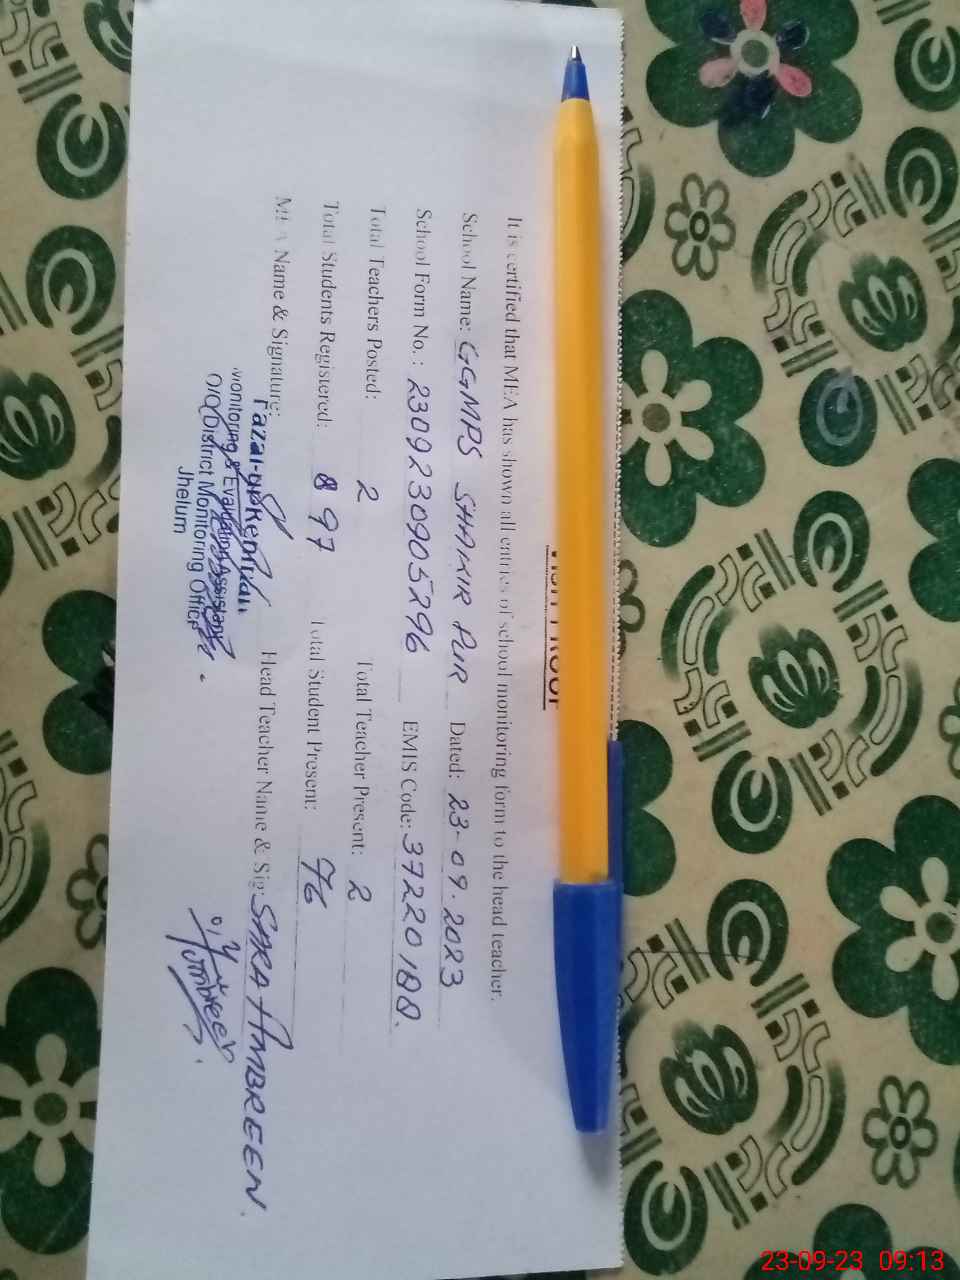 VISIT PROOF
It is certified that MEA has shown all entries of school monitoring form to the head teacher.
School Name: GGMPS SHAMIR PUR Dated: 23-09-2023
School Form No.: 2309230905296 EMIS Code: 37220188.
Total Teachers Posted: 2 Total Teacher Present: 2
Total Students Registered: 97 Total Student Present: 76
MEA Name & Signature: Head Teacher Name & Sig: SARA AMBREEN.
Monitoring & Evaluation Assistant
O/O District Monitoring Office
Jhelum
23-09-23 09:13